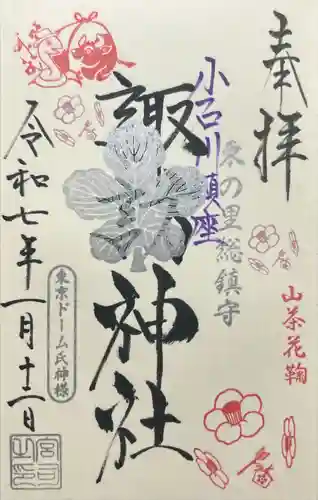 奉拝
小石川鎮座
の里総鎮守
諏訪神社
山茶花鞠
令和七年一月十一日
東京ドーム氏神様
宮司之印